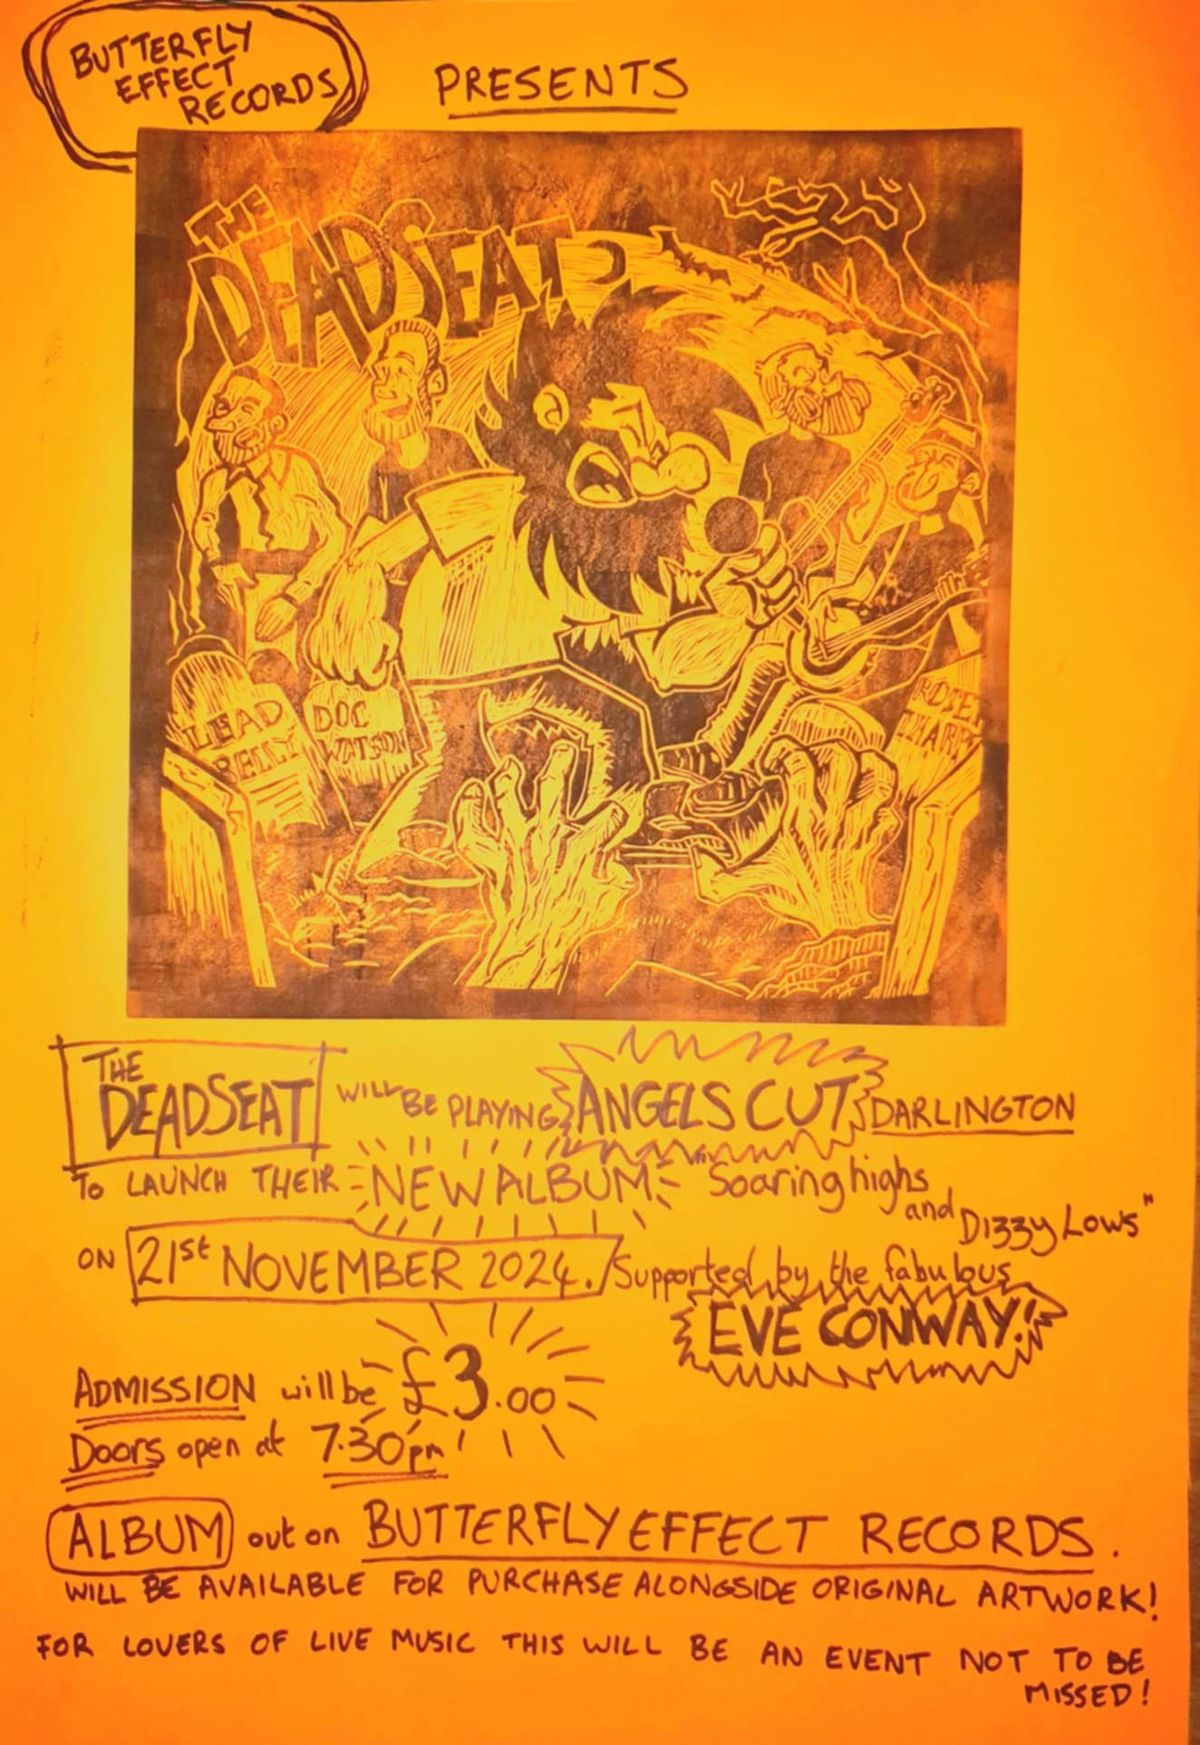 BUTTERFLY
EFFECT
RECORDS
PRESENTS
THE
DEADSEAT
LEAD
BELLY
DOC
WATSON
THE
DEADSEAT WILL BE PLAYING ANGELS CUT DARLINGTON
TO LAUNCH THEIR NEW ALBUM "Soaring highs
and Dizzy Lows"
ON 21st NOVEMBER 2024. / Supported by the fabulous
EVE CONWAY!
ADMISSION will be £3.00
Doors open at 7.30pm
ALBUM out on BUTTERFLY EFFECT RECORDS.
WILL BE AVAILABLE FOR PURCHASE ALONGSIDE ORIGINAL ARTWORK!
FOR LOVERS OF LIVE MUSIC THIS WILL BE AN EVENT NOT TO BE
MISSED!